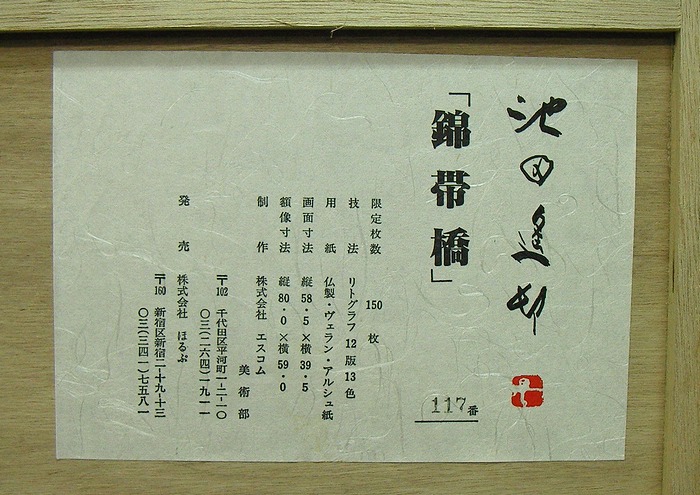 池田遙邨
「錦帯橋」
117番
限定枚数 150 枚
技法 リトグラフ12版13色
用紙 仏製・ヴェラン・アルシュ紙
画面寸法 縦58・5×横39・5
額像寸法 縦80・0×横59・0
制作 株式会社 エスコム
美術部
〒102 千代田区平河町一-二-一〇
〇三(二六四)一九一一
発売 株式会社 ほるぷ
〒160 新宿区新宿二-十九-十三
〇三(三四一)七五八一